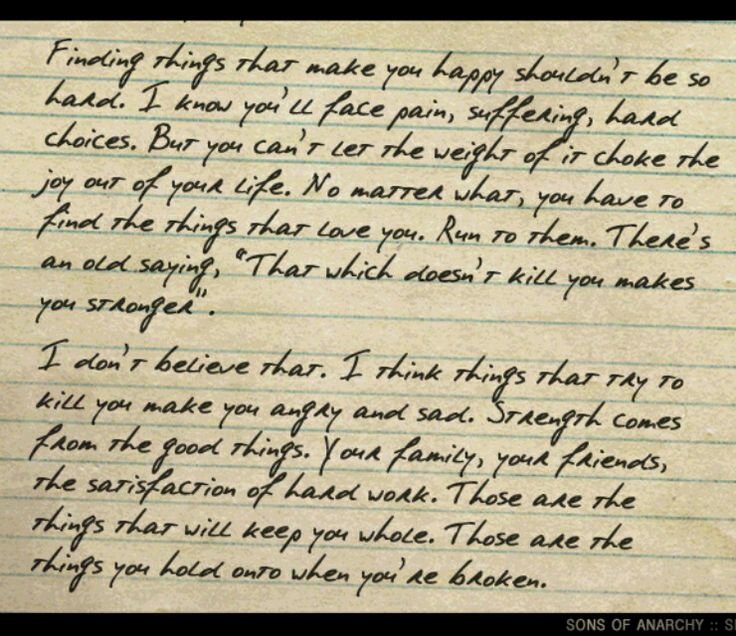 Finding things that make you happy shouldn't be so
hard. I know you'll face pain, suffering, hard
choices. But you can't let the weight of it choke the
joy out of your life. No matter what, you have to
find the things that love you. Run to them. There's
an old saying, "That which doesn't kill you makes
you stronger".
I don't believe that. I think things that try to
kill you make you angry and sad. Strength comes
from the good things. Your family, your friends,
the satisfaction of hard work. Those are the
things that will keep you whole. Those are the
things you hold onto when you're broken.
SONS OF ANARCHY ::